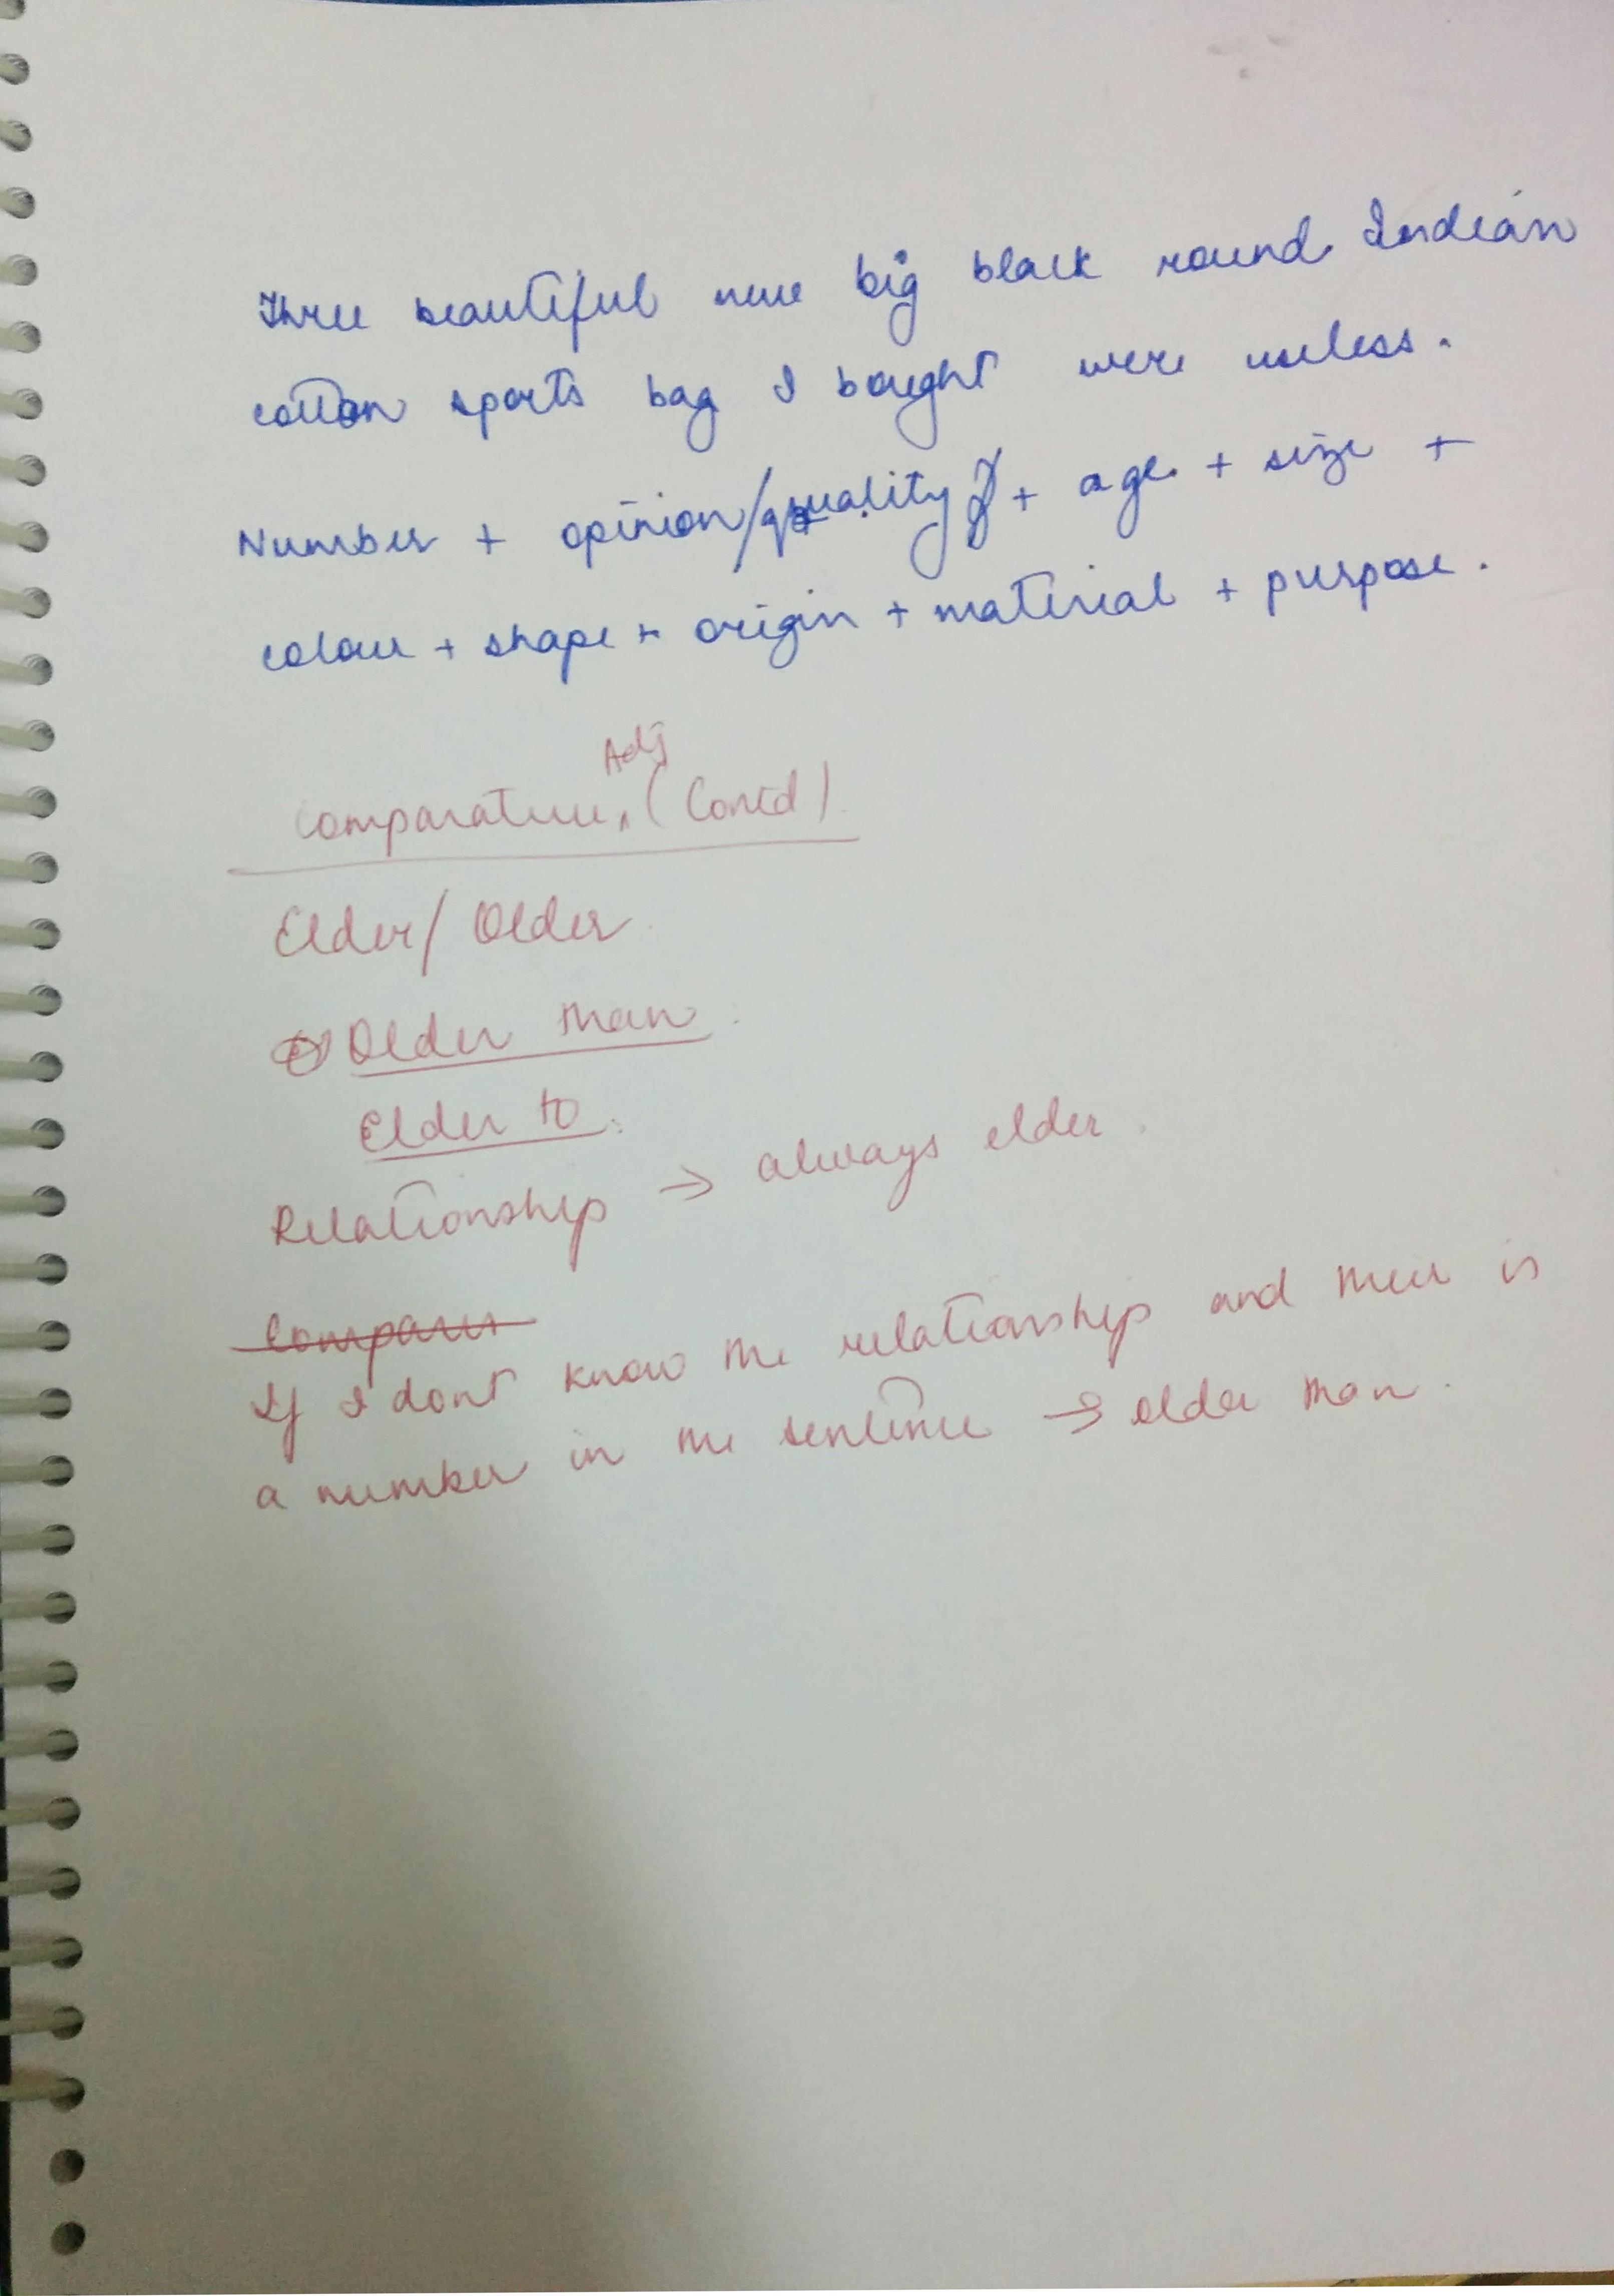 Three beautiful new big black round Indian
cotton sports bag I bought were useless.
Number + opinion/quality + age + size +
colour + shape + origin + material + purpose.
Adj
Comparative ‸ (Contd)
Elder/ Older
Older than
Elder to
Relationship → always elder.
Compare
If I dont know the relationship and there is
a number in the sentence → older than.